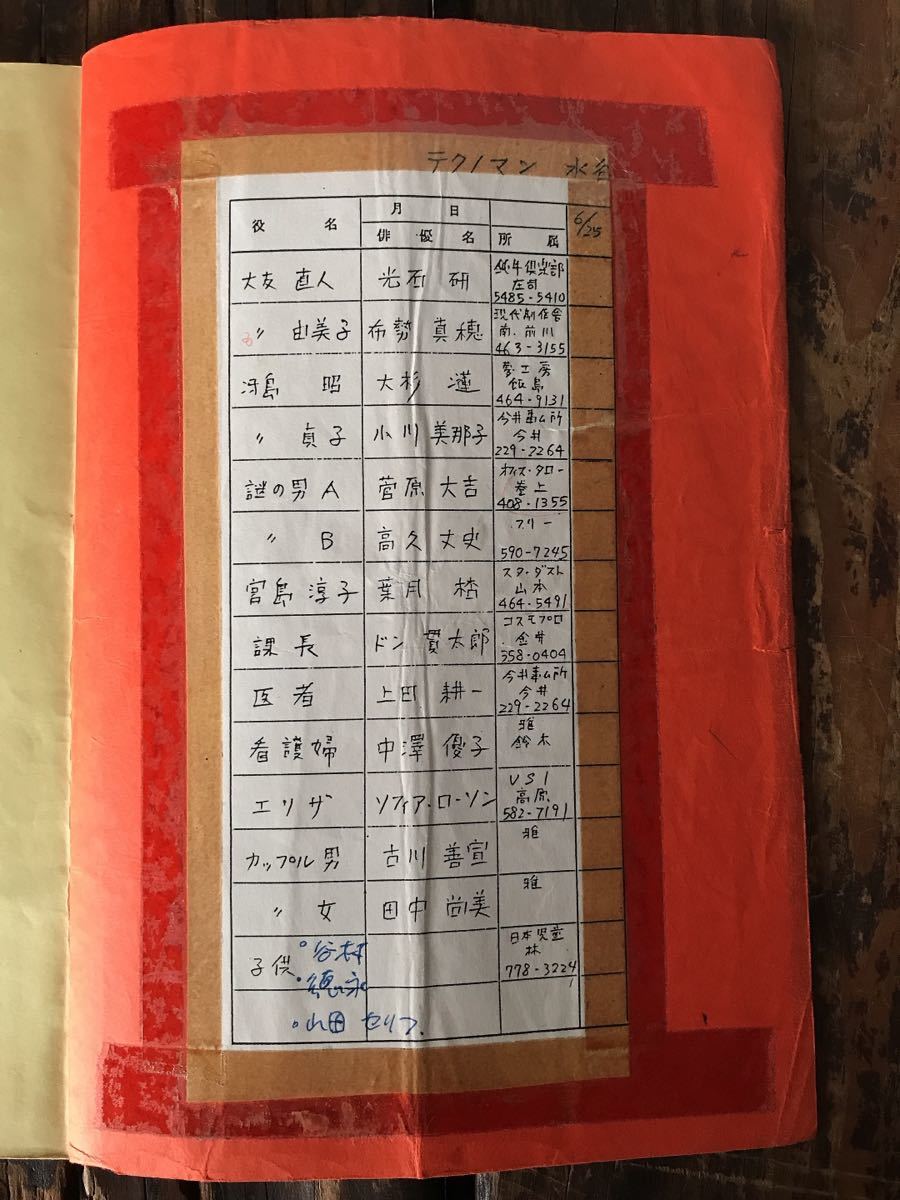 テクノマン 水谷
役名 月日 6/25
俳優名 所属
大友 直人 光石 研 鈍牛倶楽部
庄司
5485-5410
〃 由美子 布勢 真穂 現代制作舎
南、前川
463-3155
冴島 昭 大杉 漣 夢工房
飯島
464-9131
〃 貞子 小川 美那子 今井事ム所
今井
229-2264
謎の男 A 菅原 大吉 オフィス・タロー
408-1355
〃 B 高久 丈史 フリー
590-7245
宮島 淳子 葉月 スターダスト
山本
464-5491
課長 ドン 貫太郎 コスモプロ
金井
358-0404
医者 上田 耕一 今井事ム所
今井
229-2264
看護婦 中澤 優子 雅
鈴木
エリザ ソフィア・ローソン VSI
高原
582-7191
カップル 男 古川 善宣 雅
〃 女 田中 尚美 雅
子供 日本児童
林
778-3224
。谷村
。徳永
。山田 セリフ.